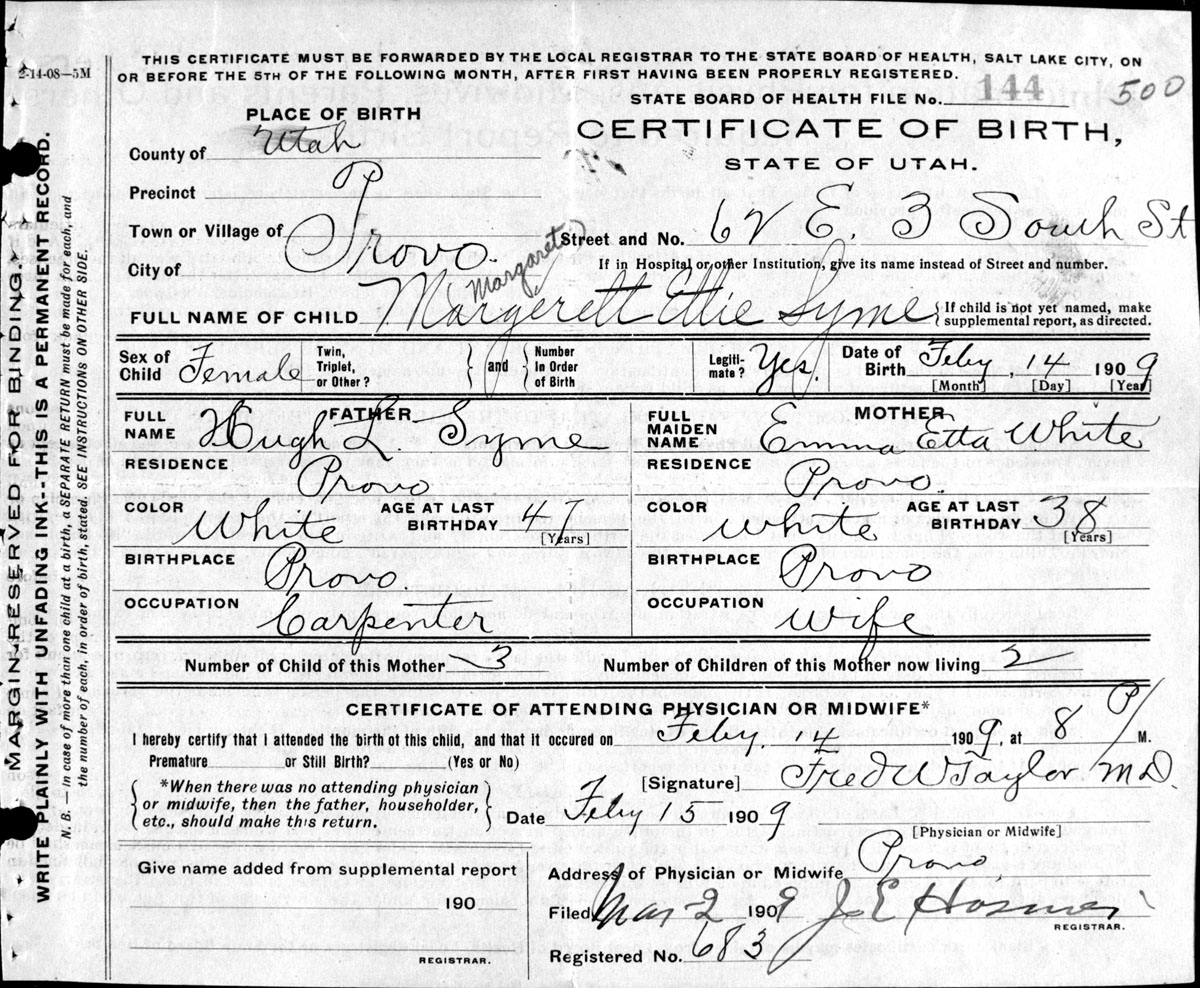 2-14-08—5M
THIS CERTIFICATE MUST BE FORWARDED BY THE LOCAL REGISTRAR TO THE STATE BOARD OF HEALTH, SALT LAKE CITY, ON
OR BEFORE THE 5TH OF THE FOLLOWING MONTH, AFTER FIRST HAVING BEEN PROPERLY REGISTERED.
STATE BOARD OF HEALTH FILE No. 144 500
PLACE OF BIRTH
CERTIFICATE OF BIRTH,
STATE OF UTAH.
County of Utah
Precinct P
Town or Village of Provo.
Street and No. 62 E. 3 South St
City of
If in Hospital or other Institution, give its name instead of Street and number.
Margaret
FULL NAME OF CHILD Margerett Ettie Syme {If child is not yet named, make
supplemental report, as directed.
Sex of Child Female Twin, Triplet, or Other? { and } Number In Order of Birth Legiti- mate? Yes Date of Birth Feby 14 1909
[Month] [Day] [Year]
FATHER
FULL NAME Hugh L. Syme
MOTHER
FULL MAIDEN NAME Emma Etta White
RESIDENCE Provo
RESIDENCE Provo.
COLOR White AGE AT LAST BIRTHDAY 47 [Years]
COLOR White AGE AT LAST BIRTHDAY 38 [Years]
BIRTHPLACE Provo.
BIRTHPLACE Provo
OCCUPATION Carpenter
OCCUPATION Wife
Number of Child of this Mother 3 Number of Children of this Mother now living 2
CERTIFICATE OF ATTENDING PHYSICIAN OR MIDWIFE*
I hereby certify that I attended the birth of this child, and that it occured on Feby. 14 1909, at 8 P M.
Premature or Still Birth? (Yes or No)
[Signature] Fred W Taylor M.D.
{ *When there was no attending physician
or midwife, then the father, householder,
etc., should make this return. }
Date Feby 15 1909
[Physician or Midwife]
Give name added from supplemental report
190
REGISTRAR.
Address of Physician or Midwife Provo
Filed Mar 2 1909 J E Hosmer
REGISTRAR.
Registered No. 683
MARGIN RESERVED FOR BINDING.
WRITE PLAINLY WITH UNFADING INK.-THIS IS A PERMANENT RECORD.
N. B. — In case of more than one child at a birth, a SEPARATE RETURN must be made for each, and
the number of each, in order of birth, stated. SEE INSTRUCTIONS ON OTHER SIDE.